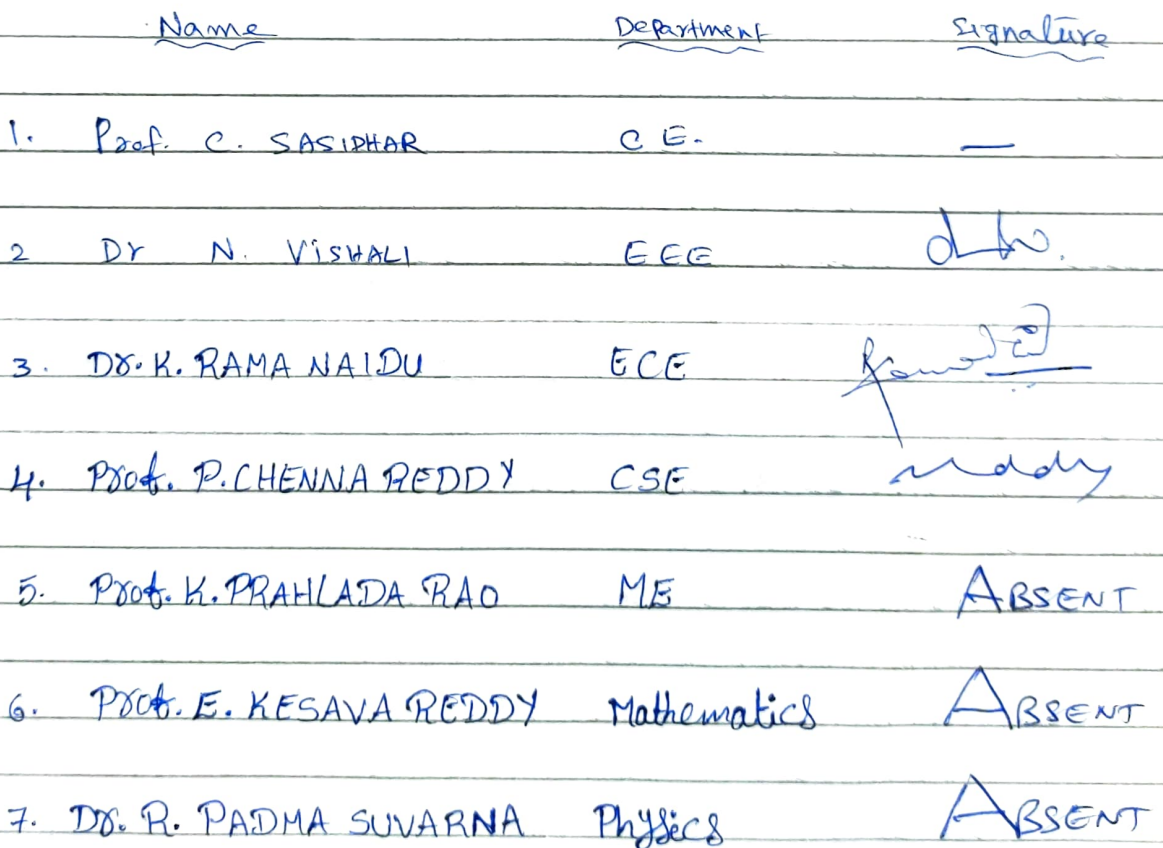 Name Department Signature
1. Prof. C. SASIDHAR C E. —
2 Dr N. ViSHALI EEE
3. Dr. K. RAMA NAIDU ECE
4. Prof. P. CHENNA REDDY CSE
5. Prof. K. PRAHLADA RAO ME ABSENT
6. Prof. E. KESAVA REDDY Mathematics ABSENT
7. Dr. R. PADMA SUVARNA Physics ABSENT